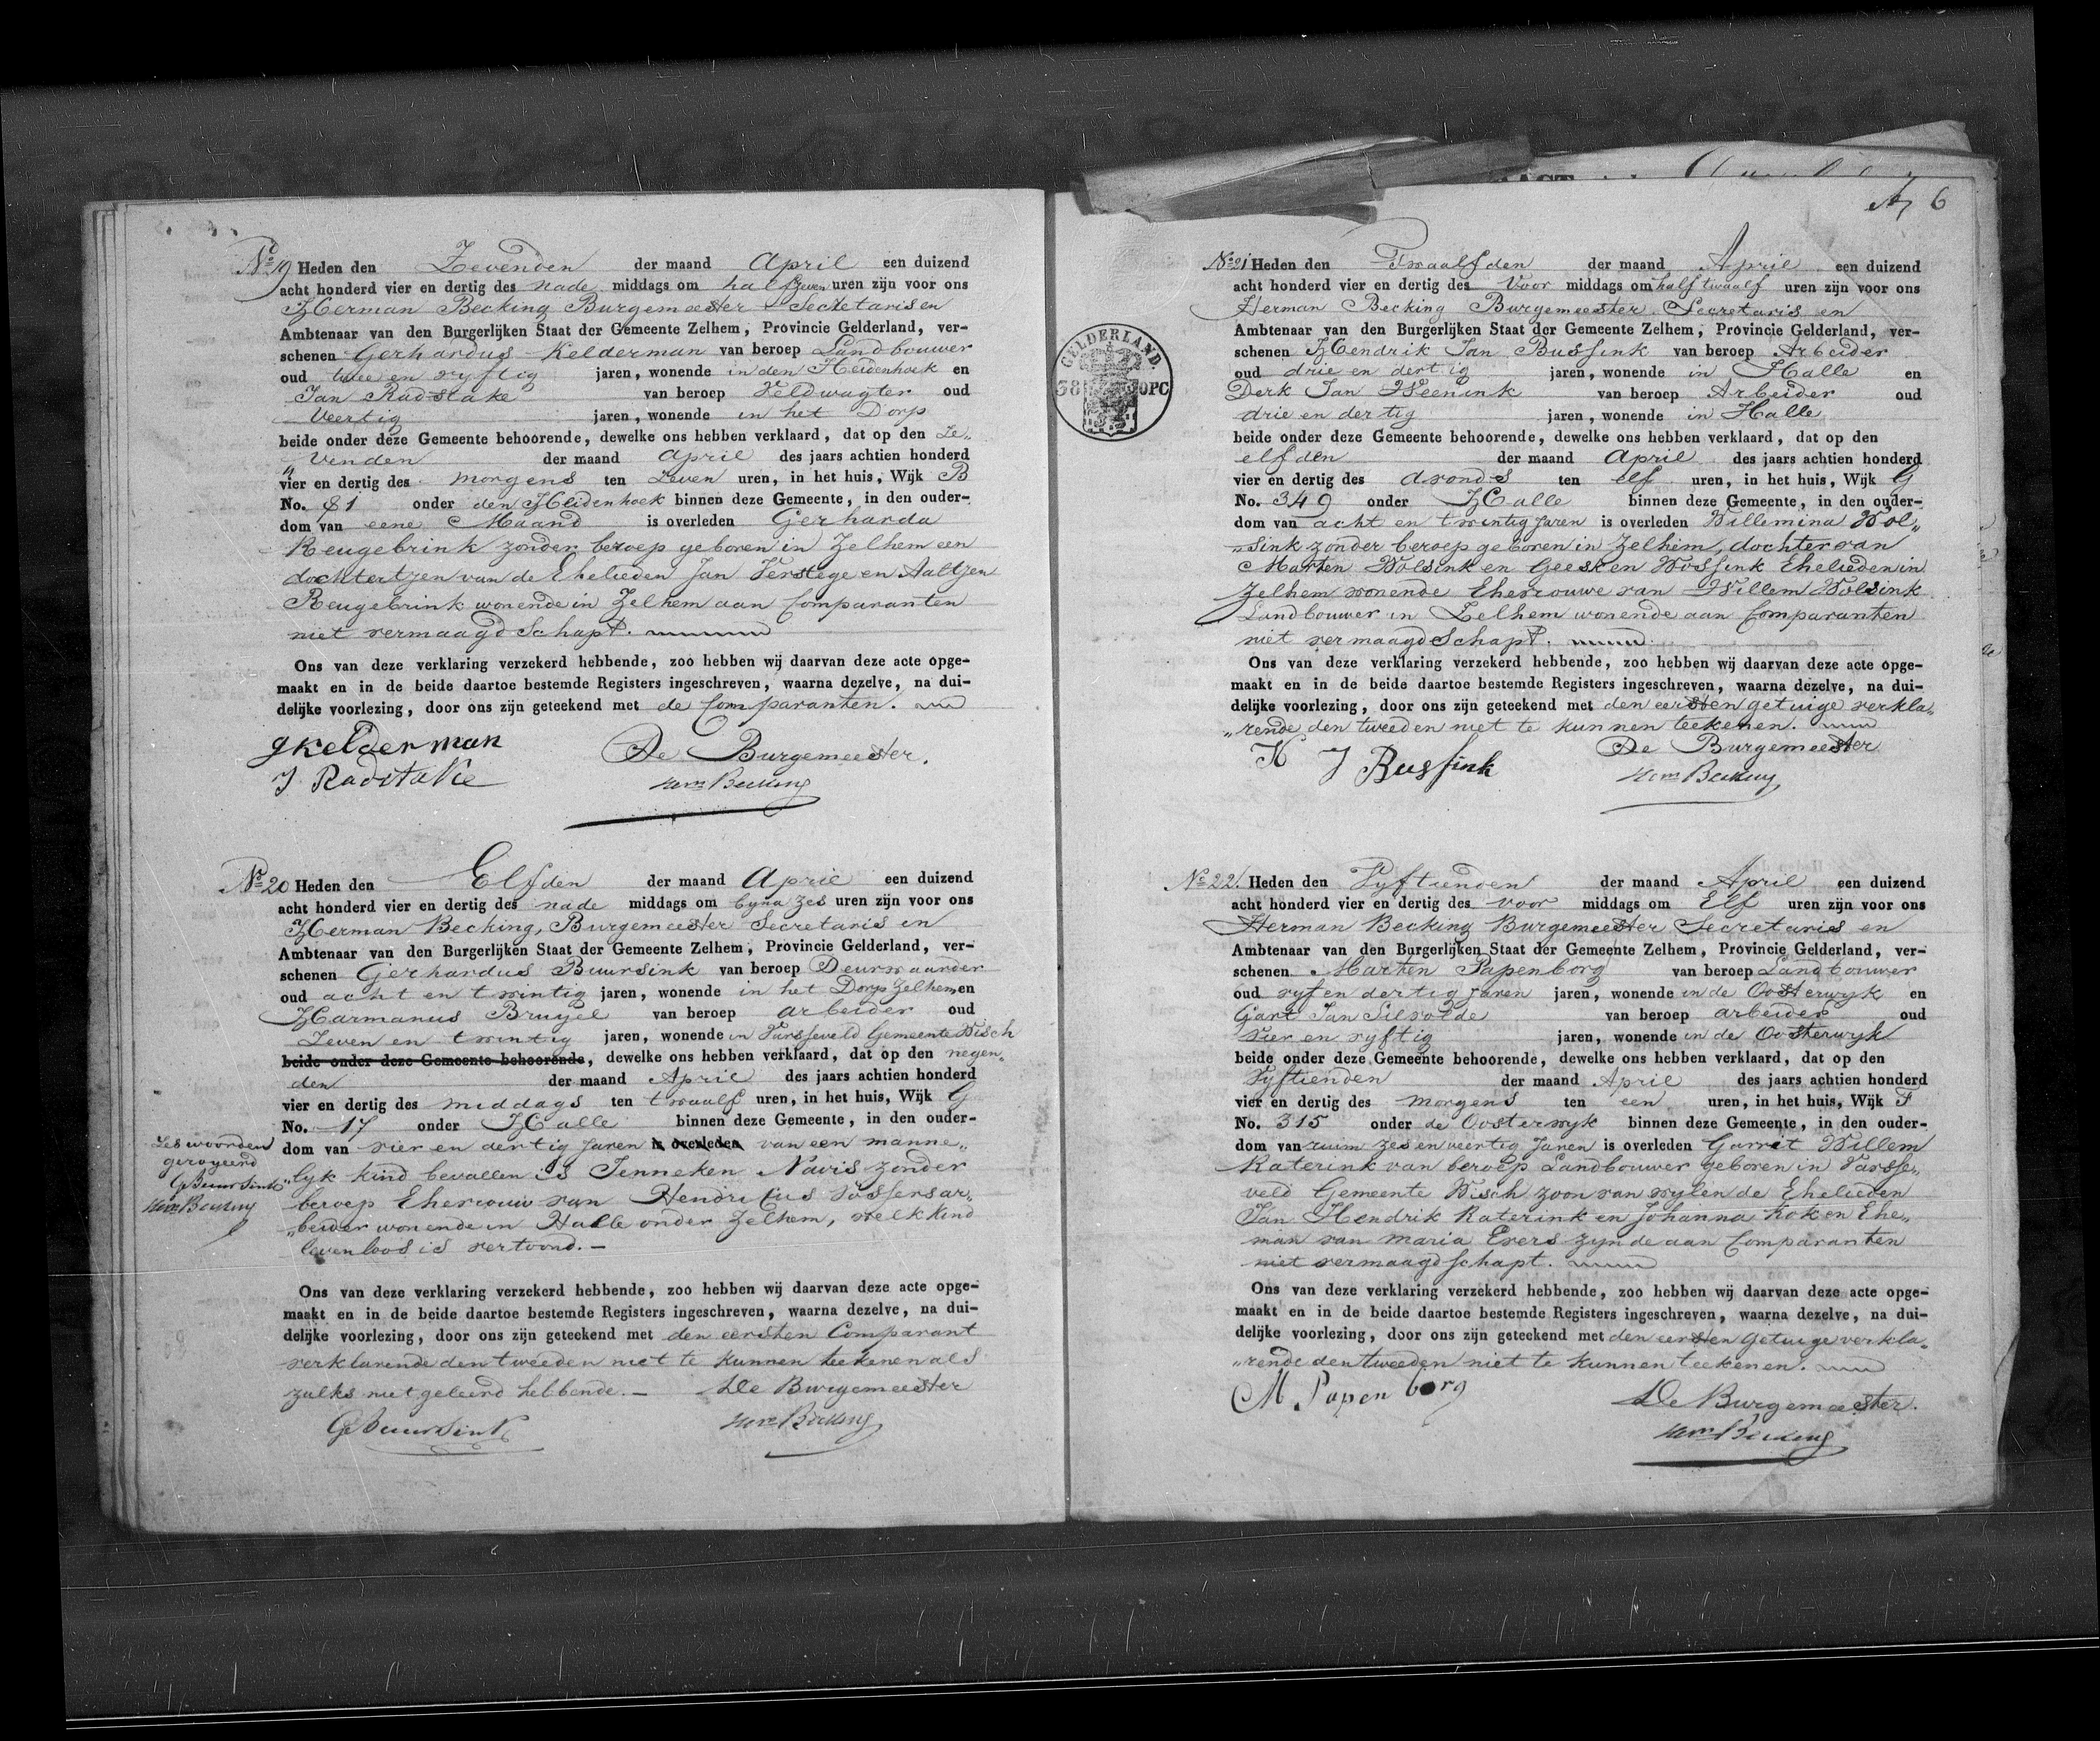 No 19 Heden den Zevenden der maand April een duizend
acht honderd vier en dertig des nade middags om half zeven uren zijn voor ons
Herman Becking Burgemeester Secretaris en
Ambtenaar van den Burgerlijken Staat der Gemeente Zelhem, Provincie Gelderland, ver-
schenen Gerhardus Kelderman van beroep Landbouwer
oud twee en vyftig jaren, wonende in den Heidenhoek en
Jan Radstake van beroep Veldwagter oud
Veertig jaren, wonende in het Dorp
beide onder deze Gemeente behoorende, dewelke ons hebben verklaard, dat op den Ze„
„venden der maand April des jaars achtien honderd
vier en dertig des morgens ten Zeven uren, in het huis, Wijk B
No. 81 onder den Heidenhoek binnen deze Gemeente, in den ouder-
dom van eene Maand is overleden Gerharda
Reugebrink zonder beroep geboren in Zelhem een
dochtertjen van de Ehelieden Jan Verstege en Aaltjen
Reugebrink wonende in Zelhem aan Comparanten
niet vermaagdschapt.
Ons van deze verklaring verzekerd hebbende, zoo hebben wij daarvan deze acte opge-
maakt en in de beide daartoe bestemde Registers ingeschreven, waarna dezelve, na dui-
delijke voorlezing, door ons zijn geteekend met de Comparanten.
g Kelderman De Burgemeester.
J. Radstake Herm Becking
No 20 Heden den Elfden der maand April een duizend
acht honderd vier en dertig des nade middags om byna zes uren zijn voor ons
Herman Becking, Burgemeester Secretaris en
Ambtenaar van den Burgerlijken Staat der Gemeente Zelhem, Provincie Gelderland, ver-
schenen Gerhardus Buursink van beroep Deurwaarder
oud acht en twintig jaren, wonende in het Dorp Zelhem en
Harmanus Bruyel van beroep arbeider oud
Zeven en twintig jaren, wonende in Varsseveld Gemeente Wisch
beide onder deze Gemeente behoorende, dewelke ons hebben verklaard, dat op den negen„
den der maand April des jaars achtien honderd
vier en dertig des middags ten twaalf uren, in het huis, Wijk G
No. 17 onder Halle binnen deze Gemeente, in den ouder-
dom van vier en dertig Jaren is overleden van een manne„
„lyk kind bevallen is Jenneken Navis zonder
beroep Ehevrouw van Hendricus Vossers ar„
„beider wonende in Halle onder Zelhem, welk kind
levenloos is vertoond. —
Zes woorden
geroyeerd
GBuursink
Herm Becking
Ons van deze verklaring verzekerd hebbende, zoo hebben wij daarvan deze acte opge-
maakt en in de beide daartoe bestemde Registers ingeschreven, waarna dezelve, na dui-
delijke voorlezing, door ons zijn geteekend met den eersten Comparant
verklarende den tweeden niet te kunnen teekenen als
zulks niet geleerd hebbende. — De Burgemeester
GBuursink Herm Becking
6
GELDERLAND.
38 30PC
No 21 Heden den Twaalfden der maand April een duizend
acht honderd vier en dertig des Voor middags om half twaalf uren zijn voor ons
Herman Becking Burgemeester Secretaris en
Ambtenaar van den Burgerlijken Staat der Gemeente Zelhem, Provincie Gelderland, ver-
schenen Hendrik Jan Bussink van beroep Arbeider
oud drie en dertig jaren, wonende in Halle en
Derk Jan Weenink van beroep Arbeider oud
drie en dertig jaren, wonende in Halle
beide onder deze Gemeente behoorende, dewelke ons hebben verklaard, dat op den
elfden der maand April des jaars achtien honderd
vier en dertig des avonds ten elf uren, in het huis, Wijk G
No. 349 onder Halle binnen deze Gemeente, in den ouder-
dom van acht en twintig Jaren is overleden Willemina Wol„
„sink zonder beroep geboren in Zelhem, dochter van
Marten Wolsink en Geesken Wossink Ehelieden in
Zelhem wonende Ehevrouwe van Willem Wolsink
Landbouwer in Zelhem wonende aan Comparanten
niet vermaagdschapt.
Ons van deze verklaring verzekerd hebbende, zoo hebben wij daarvan deze acte opge-
maakt en in de beide daartoe bestemde Registers ingeschreven, waarna dezelve, na dui-
delijke voorlezing, door ons zijn geteekend met den eersten getuige verkla„
„rende den tweeden niet te kunnen teekenen.
H J Bussink De Burgemeester
Herm Becking
No 22. Heden den Vyftienden der maand April een duizend
acht honderd vier en dertig des voor middags om Elf uren zijn voor ons
Herman Becking Burgemeester Secretaries en
Ambtenaar van den Burgerlijken Staat der Gemeente Zelhem, Provincie Gelderland, ver-
schenen Marten Papenborg van beroep Landbouwer
oud vyf en dertig Jaren jaren, wonende in de Oosterwyk en
Gart Jan Silvolde van beroep arbeider oud
vier en vyftig jaren, wonende in de Oosterwyk
beide onder deze Gemeente behoorende, dewelke ons hebben verklaard, dat op den
Vyftienden der maand April des jaars achtien honderd
vier en dertig des morgens ten een uren, in het huis, Wijk F
No. 315 onder de Oosterwyk binnen deze Gemeente, in den ouder-
dom van ruim zes en veertig Jaren is overleden Garrit Willem
Raterink van beroep Landbouwer geboren in Varsse„
veld Gemeente Wisch zoon van wylen de Ehelieden
Jan Hendrik Raterink en Johanna Kok en Ehe„
man van Maria Evers zynde aan Comparanten
niet vermaagdschapt.
Ons van deze verklaring verzekerd hebbende, zoo hebben wij daarvan deze acte opge-
maakt en in de beide daartoe bestemde Registers ingeschreven, waarna dezelve, na dui-
delijke voorlezing, door ons zijn geteekend met den eersten Getuige verkla„
„rende den tweeden niet te kunnen teekenen.
M Papenborg De Burgemeester.
Herm Becking